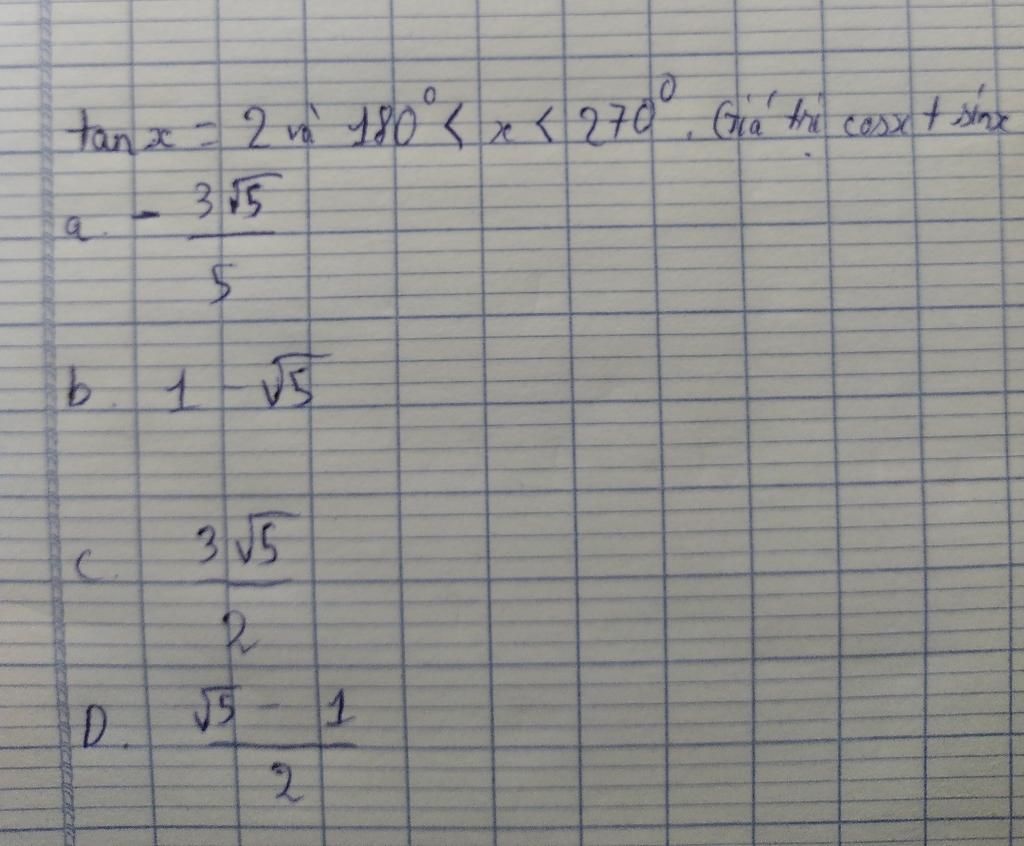 tan x = 2 và 180⁰ < x < 270⁰. Giá trị cosx + sinx
a. - 3√5 / 5
b. 1 - √5
c. 3√5 / 2
D. √5 - 1 / 2